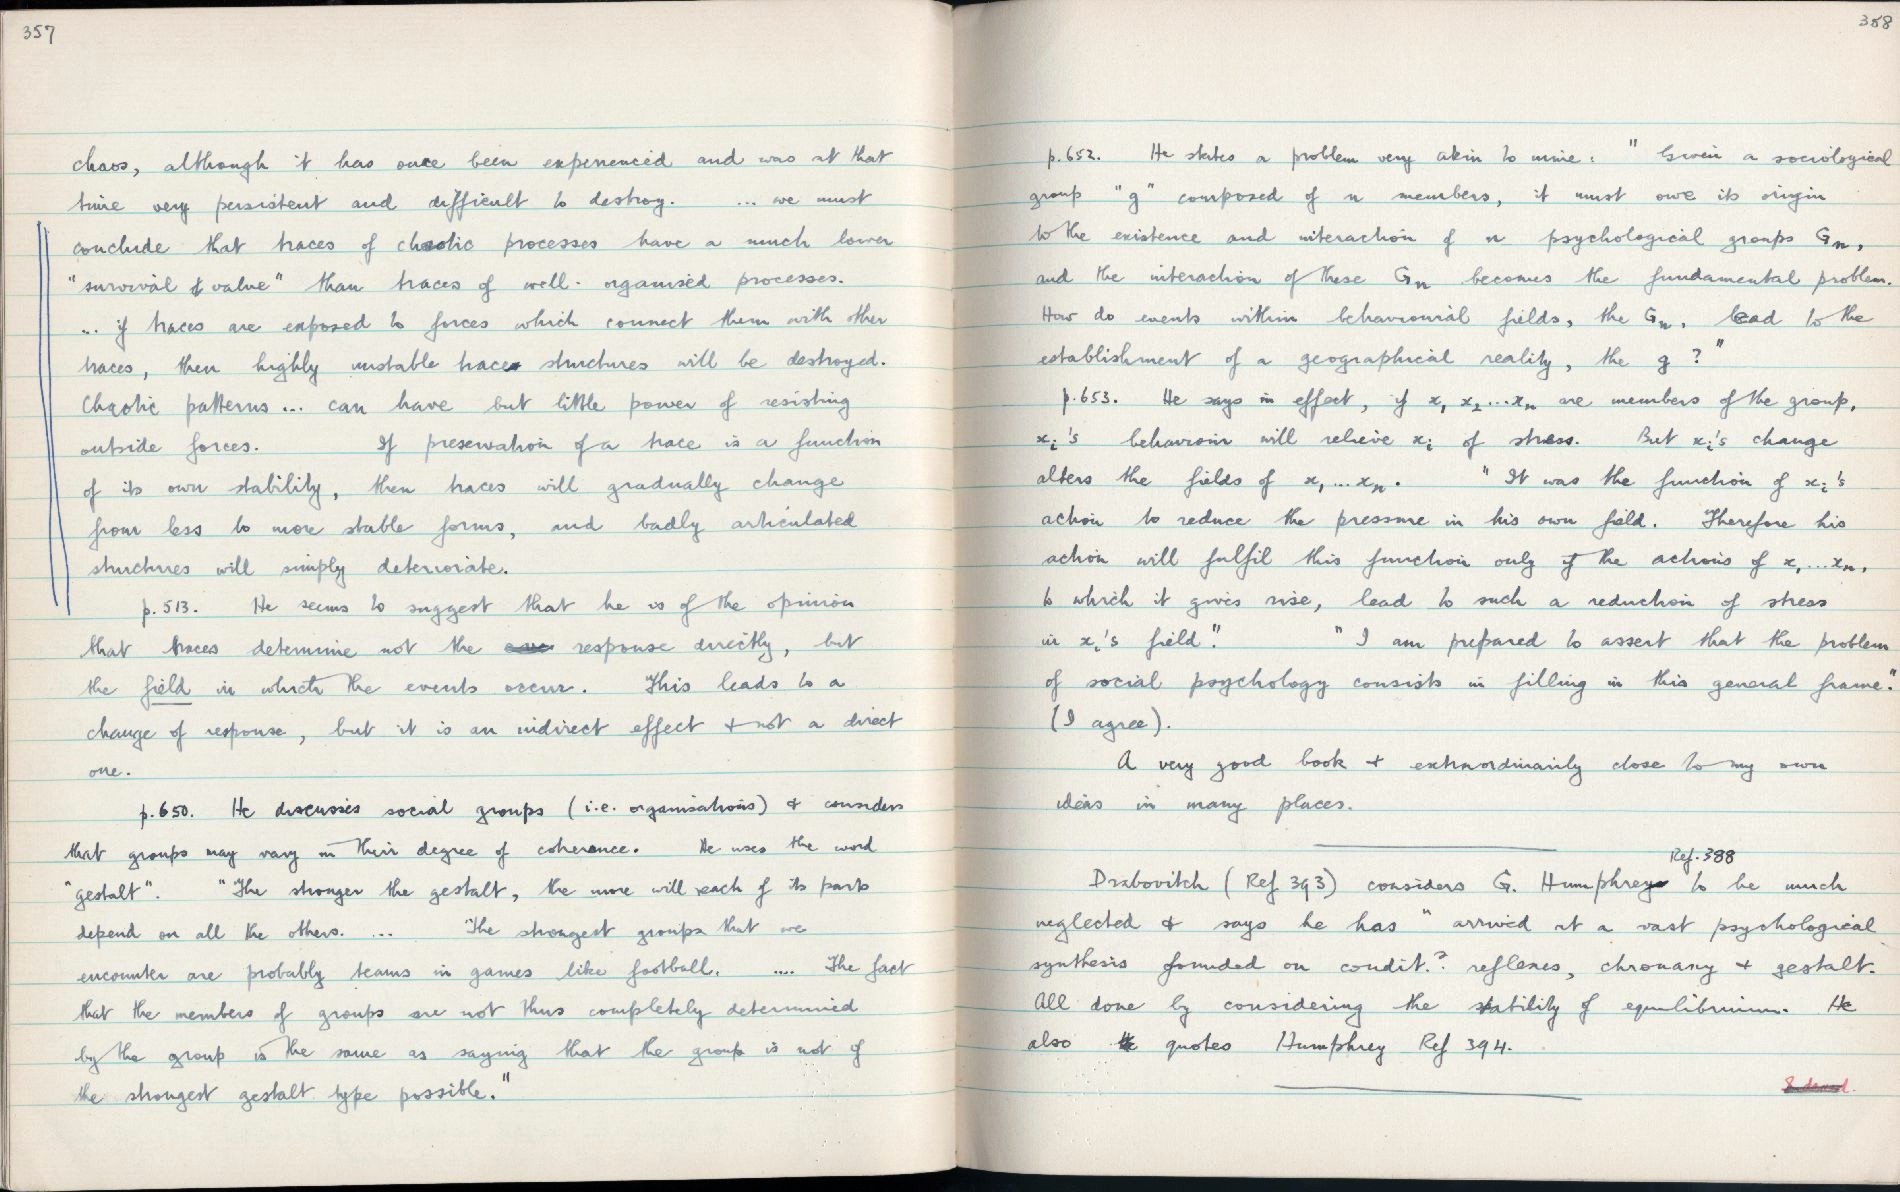 357
chaos, although it has once been experienced and was at that
time very persistent and difficult to destroy. ... we must
conclude that traces of chaotic processes have a much lower
"survival value" than traces of well-organised processes.
... if traces are exposed to forces which connect them with other
traces, then highly unstable trace structures will be destroyed.
Chaotic patterns ... can have but little power of resisting
outside forces. If preservation of a trace is a function
of its own stability, then traces will gradually change
from less to more stable forms, and badly articulated
structures will simply deteriorate.
p.513. He seems to suggest that he is of the opinion
that traces determine not the response directly, but
the field in which the events occur. This leads to a
change of response, but it is an indirect effect & not a direct
one.
p.650. He discusses social groups (i.e. organisations) & considers
that groups may vary in their degree of coherence. He uses the word
"gestalt". "The stronger the gestalt, the more will each of its parts
depend on all the others. ... "The strongest groups that we
encounter are probably teams in games like football. .... The fact
that the members of groups are not thus completely determined
by the group is the same as saying that the group is not of
the strongest gestalt type possible."
358
p.652. He states a problem very akin to mine: "Given a sociological
group "g" composed of n members, it must owe its origin
to the existence and interaction of n psychological groups Gn,
and the interaction of these Gn becomes the fundamental problem.
How do events within behavioural fields, the Gn, lead to the
establishment of a geographical reality, the g?"
p.653. He says in effect, if x₁ x₂...xn are members of the group,
xi's behaviour will relieve xi of stress. But xi's change
alters the fields of x₁...xn. "It was the function of xi's
action to reduce the pressure in his own field. Therefore his
action will fulfil this function only if the actions of x₁...xn,
to which it gives rise, lead to such a reduction of stress
in xi's field." "I am prepared to assert that the problem
of social psychology consists in filling in this general frame."
(I agree).
A very good book & extraordinarily close to my own
ideas in many places.
Ref. 388
Drabovitch (Ref 393) considers G. Humphrey to be much
neglected & says he has "arrived at a vast psychological
synthesis founded on condit.? reflexes, chronaxy & gestalt.
All done by considering the stability of equilibrium. He
also quotes Humphrey Ref 394.